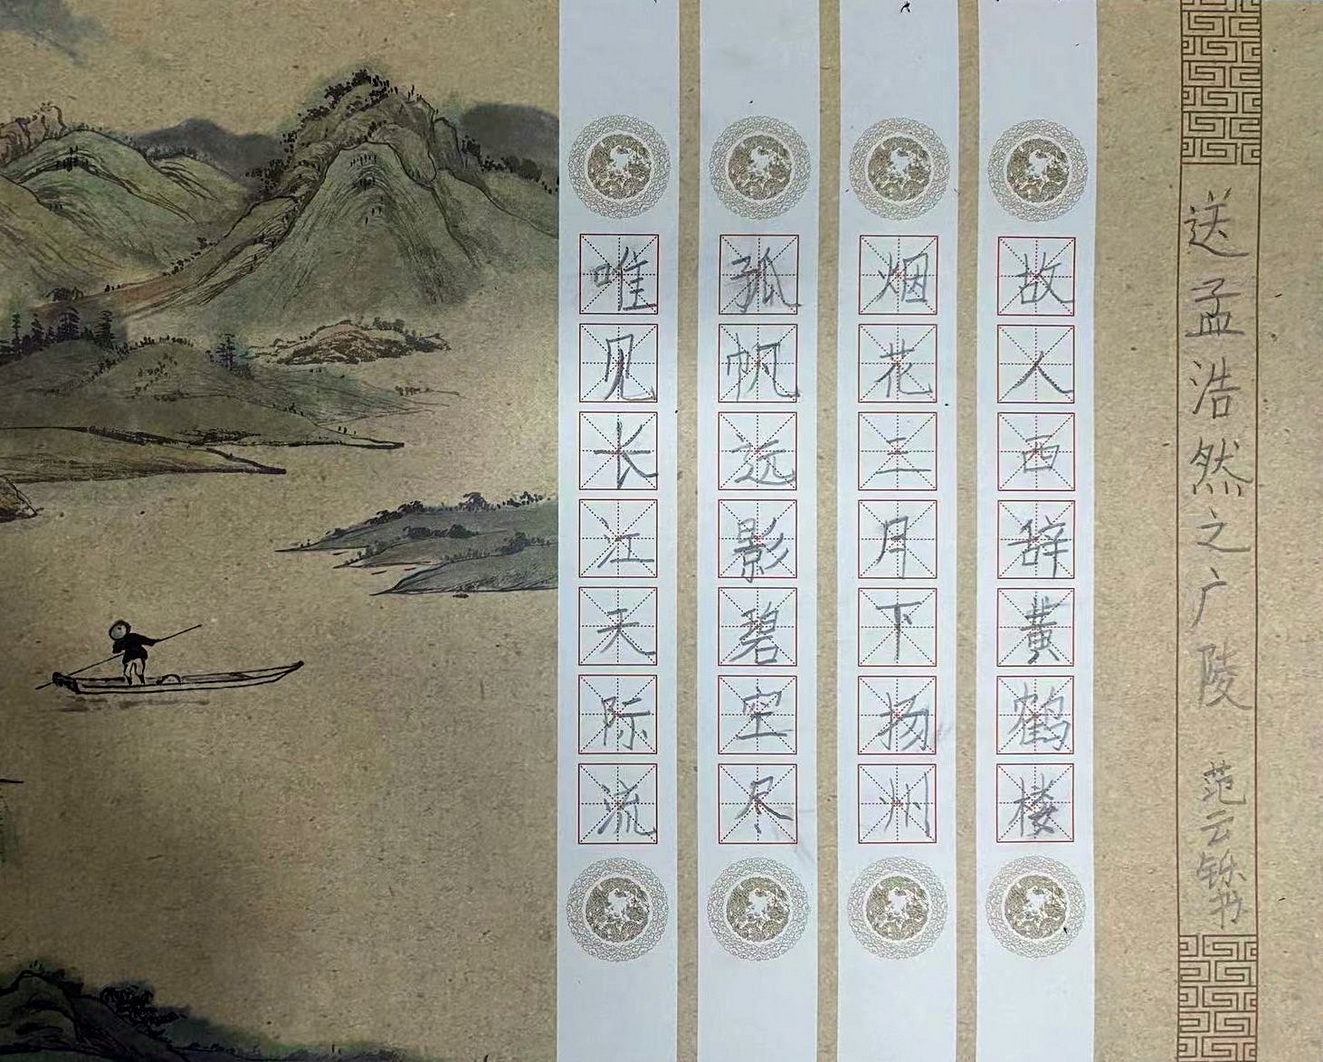 送孟浩然之广陵 范云铄书
故人西辞黄鹤楼
烟花三月下扬州
孤帆远影碧空尽
唯见长江天际流